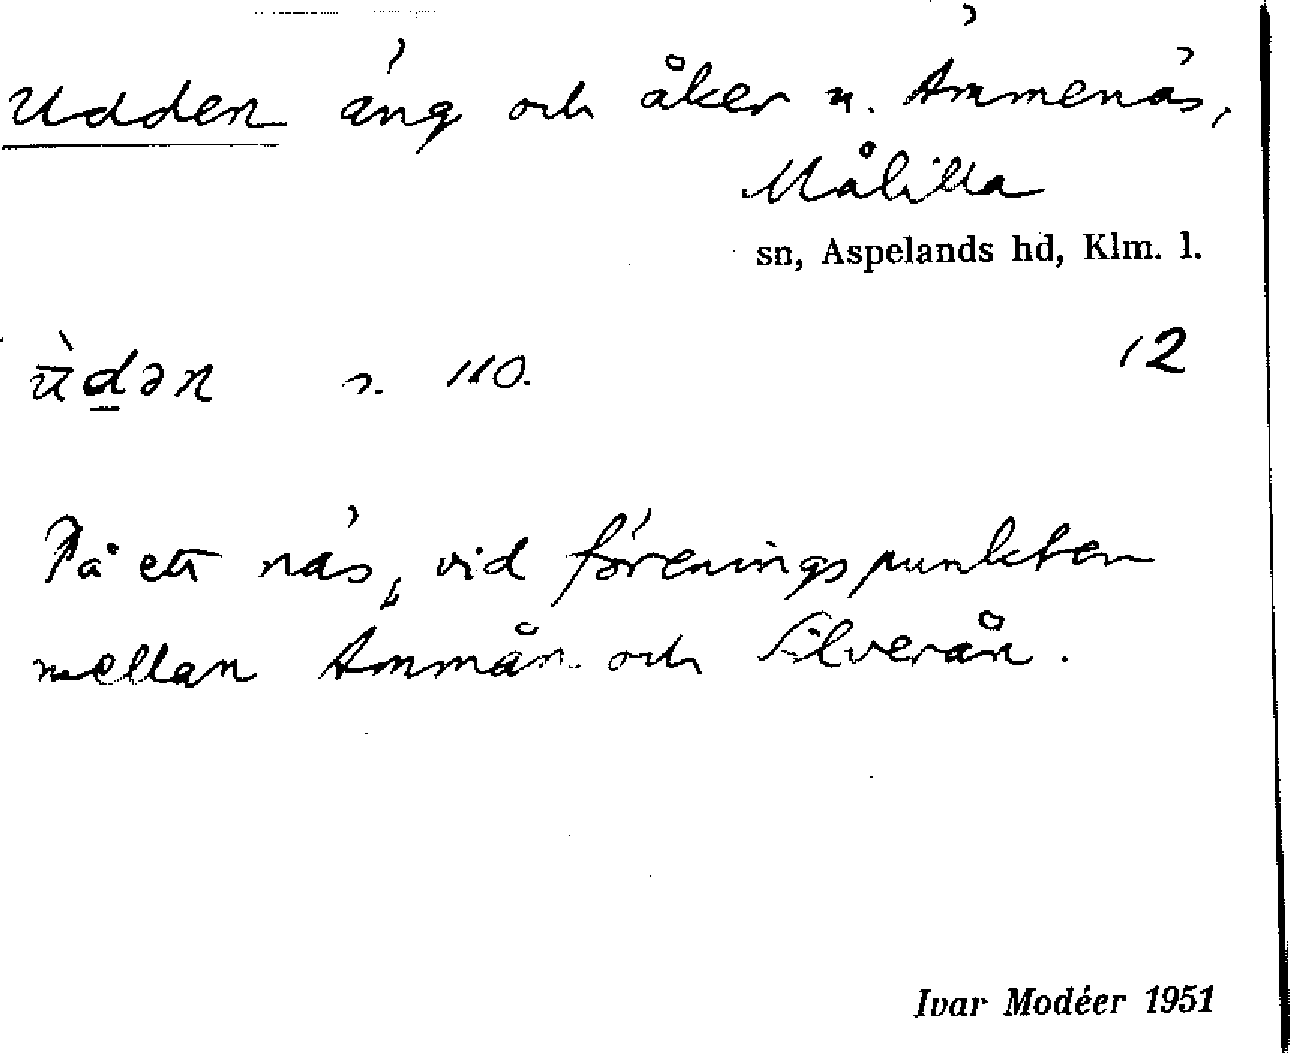 Udden äng och åker n. Ämmenäs,
Målilla
sn, Aspelands hd, Klm. l.
ùdən n. 110. 12
På ett näs, vid föreningspunkten
mellan Ämmån och Silverån.
Ivar Modéer 1951